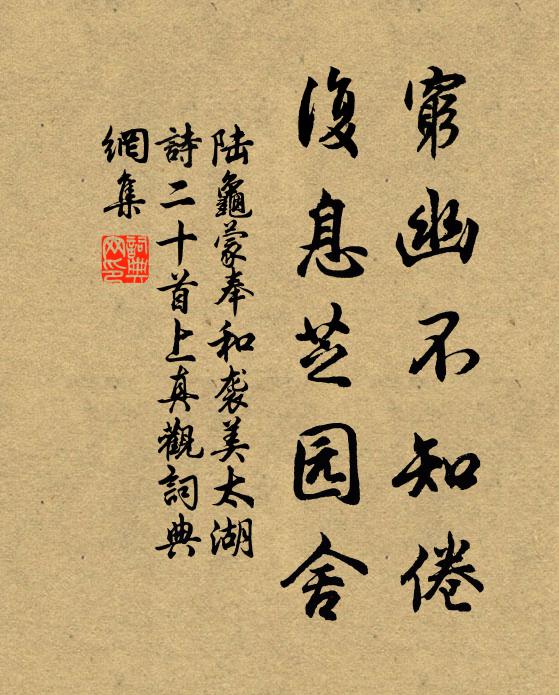 窮幽不知倦
復息芝园舍
陆龜蒙奉和袭美太湖
詩二十首上真觀詞典
網集
詞典網印